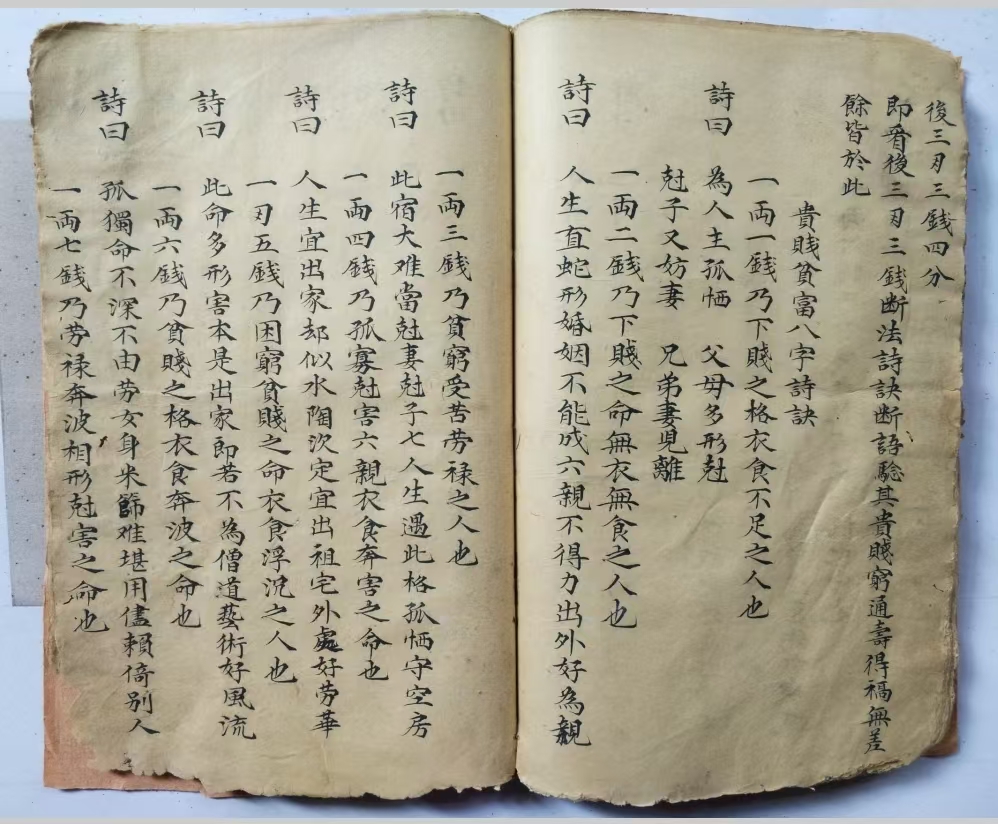 後三刃三錢四分
即看後三刃三錢断法詩訣断語驗其貴賤窮通壽得福無差
餘皆於此
貴賤貧富八字詩訣
一両一錢乃下賤之格衣食不足之人也
詩曰 為人主孤恓 父母多形尅
尅子又妨妻 兄弟妻見離
一両二錢乃下賤之命無衣無食之人也
詩曰 人生直蛇形婚姻不能成六親不得力出外好為親
一両三錢乃貧窮受苦劳禄之人也
詩曰 此宿大难當尅妻尅子七人生遇此格孤恓守空房
一両四錢乃孤寡尅害六親衣食奔害之命也
詩曰 人生宜出家却似水陶次定宜出祖宅外處好劳華
一刃五錢乃困窮貧賤之命衣食浮況之人也
詩曰 此命多形害本是出家即若不為僧道藝術好風流
一両六錢乃貧賤之格衣食奔波之命也
詩曰 孤獨命不深不由劳女身米節难堪用儘賴倚别人
一両七錢乃劳禄奔波相形尅害之命也